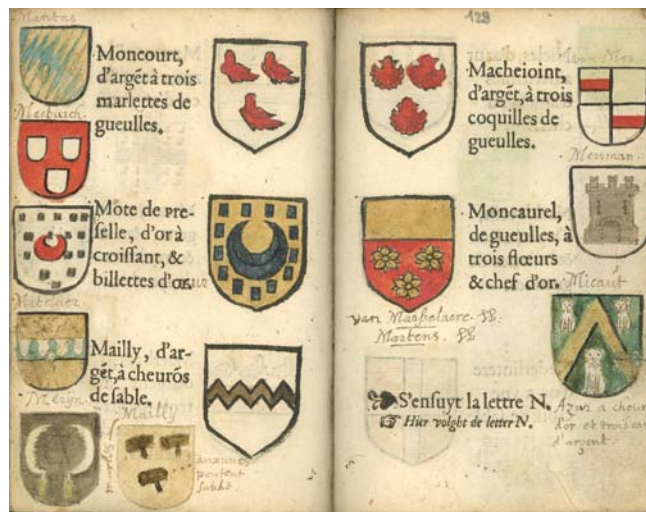 Maritas
Moncourt,
d'argẽt à trois
marlettes de
gueulles.
Meeburch
Mote de pre-
selle, d'or à
croissant, &
billettes d'or.
azur
Makelaer
Mailly, d'ar-
gẽt, à cheurõs
de sable.
Merijn
Mailly
128
Macheioint,
d'argẽt, à trois
coquilles de
gueulles.
Messman
Moncaurel,
de gueulles, à
trois flœurs
& chef d'or.
Micault
van Maskelaere
Martens
S'ensuyt la lettre N.
Hier volght de letter N.
Azur a cheur
d'or et trois
d'argent